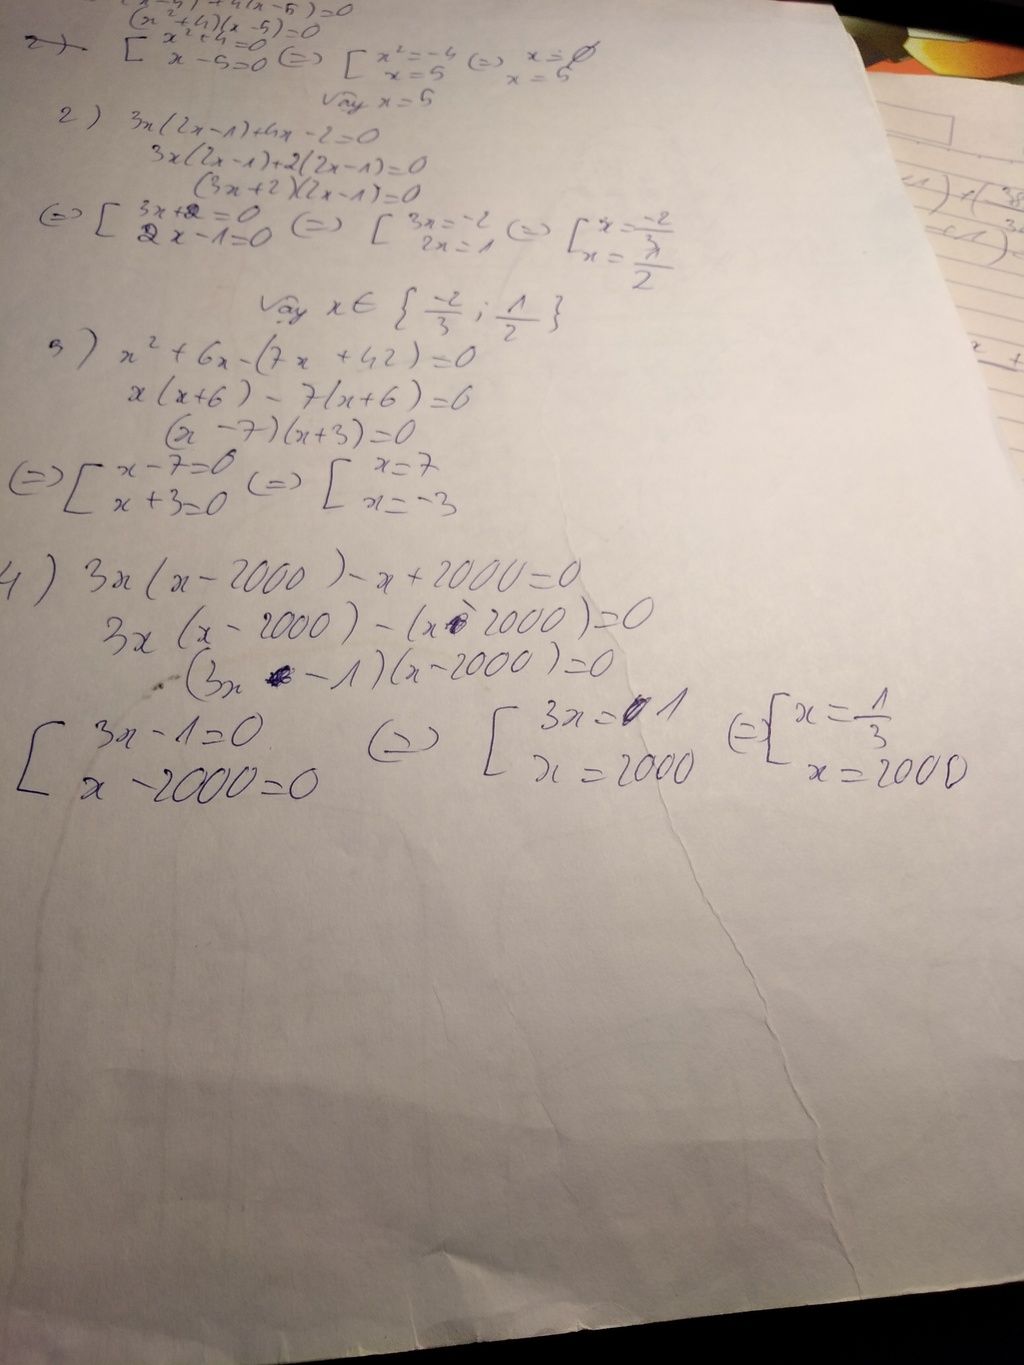 (x-5)+4(x-5)=0
(x²+4)(x-5)=0
[ x²+4=0 (=) [ x²=-4 (=) x=∅
x-5=0 x=5 x=5
Vậy x=5
2) 3x(2x-1)+4x-2=0
3x(2x-1)+2(2x-1)=0
(3x+2)(2x-1)=0
(=) [ 3x+2=0 (=) [ 3x=-2 (=) [ x=-2/3
2x-1=0 2x=1 x=1/2
Vậy x∈ { -2/3 ; 1/2 }
3) x²+6x-(7x+42)=0
x(x+6)-7(x+6)=0
(x-7)(x+3)=0
(=) [ x-7=0 (=) [ x=7
x+3=0 x=-3
4) 3x(x-2000)-x+2000=0
3x(x-2000)-(x-2000)=0
(3x-1)(x-2000)=0
[ 3x-1=0 (=) [ 3x=1 (=) [ x=1/3
x-2000=0 x=2000 x=2000